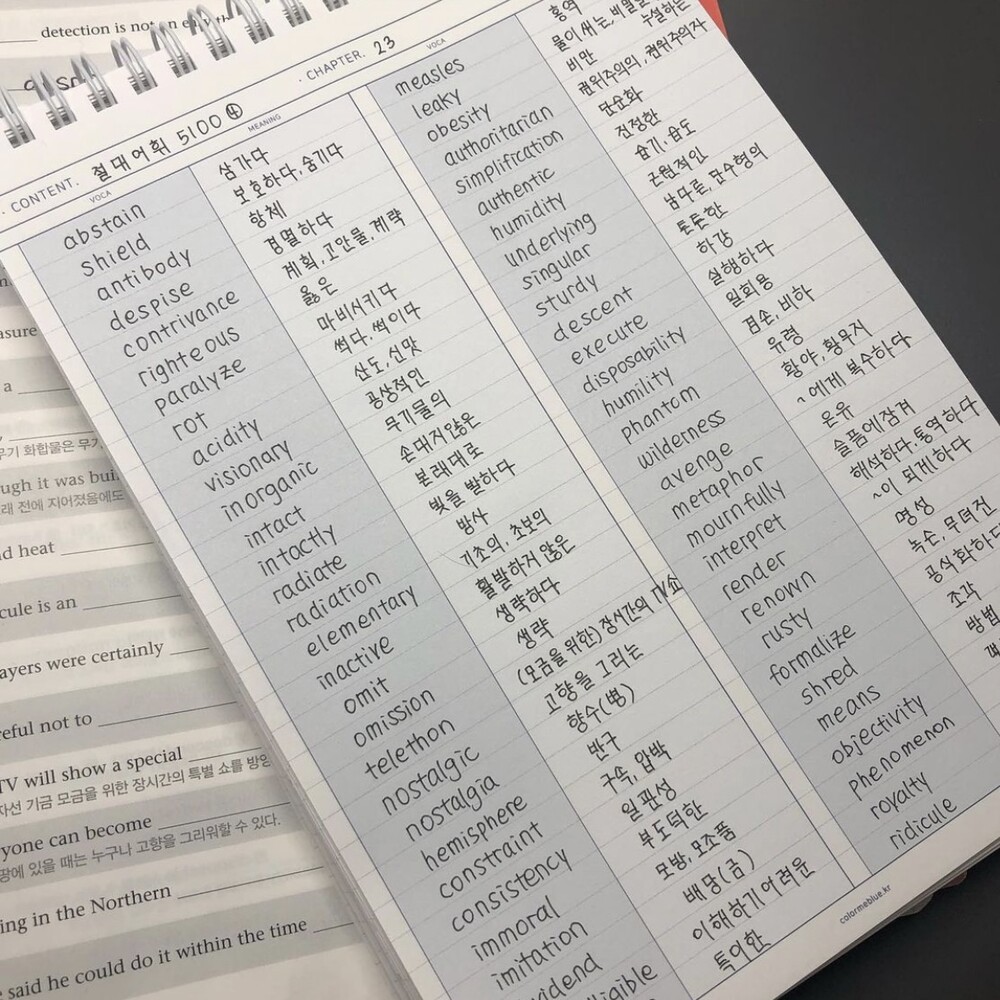 detection is not
CONTENT. 절대어휘 5100 ④
· CHAPTER. 23
VOCA MEANING
abstain 삼가다
shield 보호하다, 숨기다
antibody 항체
despise 경멸하다
contrivance 계획, 고안물, 계략
righteous 옳은
paralyze 마비시키다
rot 썩다. 썩이다
acidity 산도, 신맛
visionary 공상적인
inorganic 무기물의
intact 손대지않은
intactly 본래대로
radiate 빛을 발하다
radiation 방사
elementary 기초의, 초보의
inactive 활발하지 않은
omit 생략하다
omission 생략
telethon (모금을 위한) 장시간의 TV쇼
nostalgic 고향을 그리는
nostalgia 향수(병)
hemisphere 반구
constraint 구속, 압박
consistency 일관성
immoral 부도덕한
imitation 모방, 모조품
배당(금)
이해하기 어려운
특이한
VOCA
measles 홍역
leaky 물이 새는, 비밀을 누설하는
obesity 비만
authoritarian 권위주의의, 권위주의자
simplification 단순화
authentic 진정한
humidity 습기, 습도
underlying 근원적인
singular 남다른, 단수형의
sturdy 튼튼한
descent 하강
execute 실행하다
disposability 일회용
humility 겸손, 비하
phantom 유령
wilderness 황야, 황무지
avenge ~에게 복수하다
metaphor 은유
mournfully 슬픔에잠겨
interpret 해석하다, 통역하다
render ~이 되게하다
renown 명성
rusty 녹슨, 무뎌진
formalize 공식화하다
shred 조각
means 방법
objectivity
phenomenon
royalty
ridicule
colormeblue.kr
a
화합물은
it was
전에 지어졌음에도
heat
is an
were certainly
not to
TV will show a special
자선 기금 모금을 위한 장시간의 특별 쇼를
can become
있을 때는 누구나 고향을 그리워할 수 있다.
in the Northern
said he could do it within the time